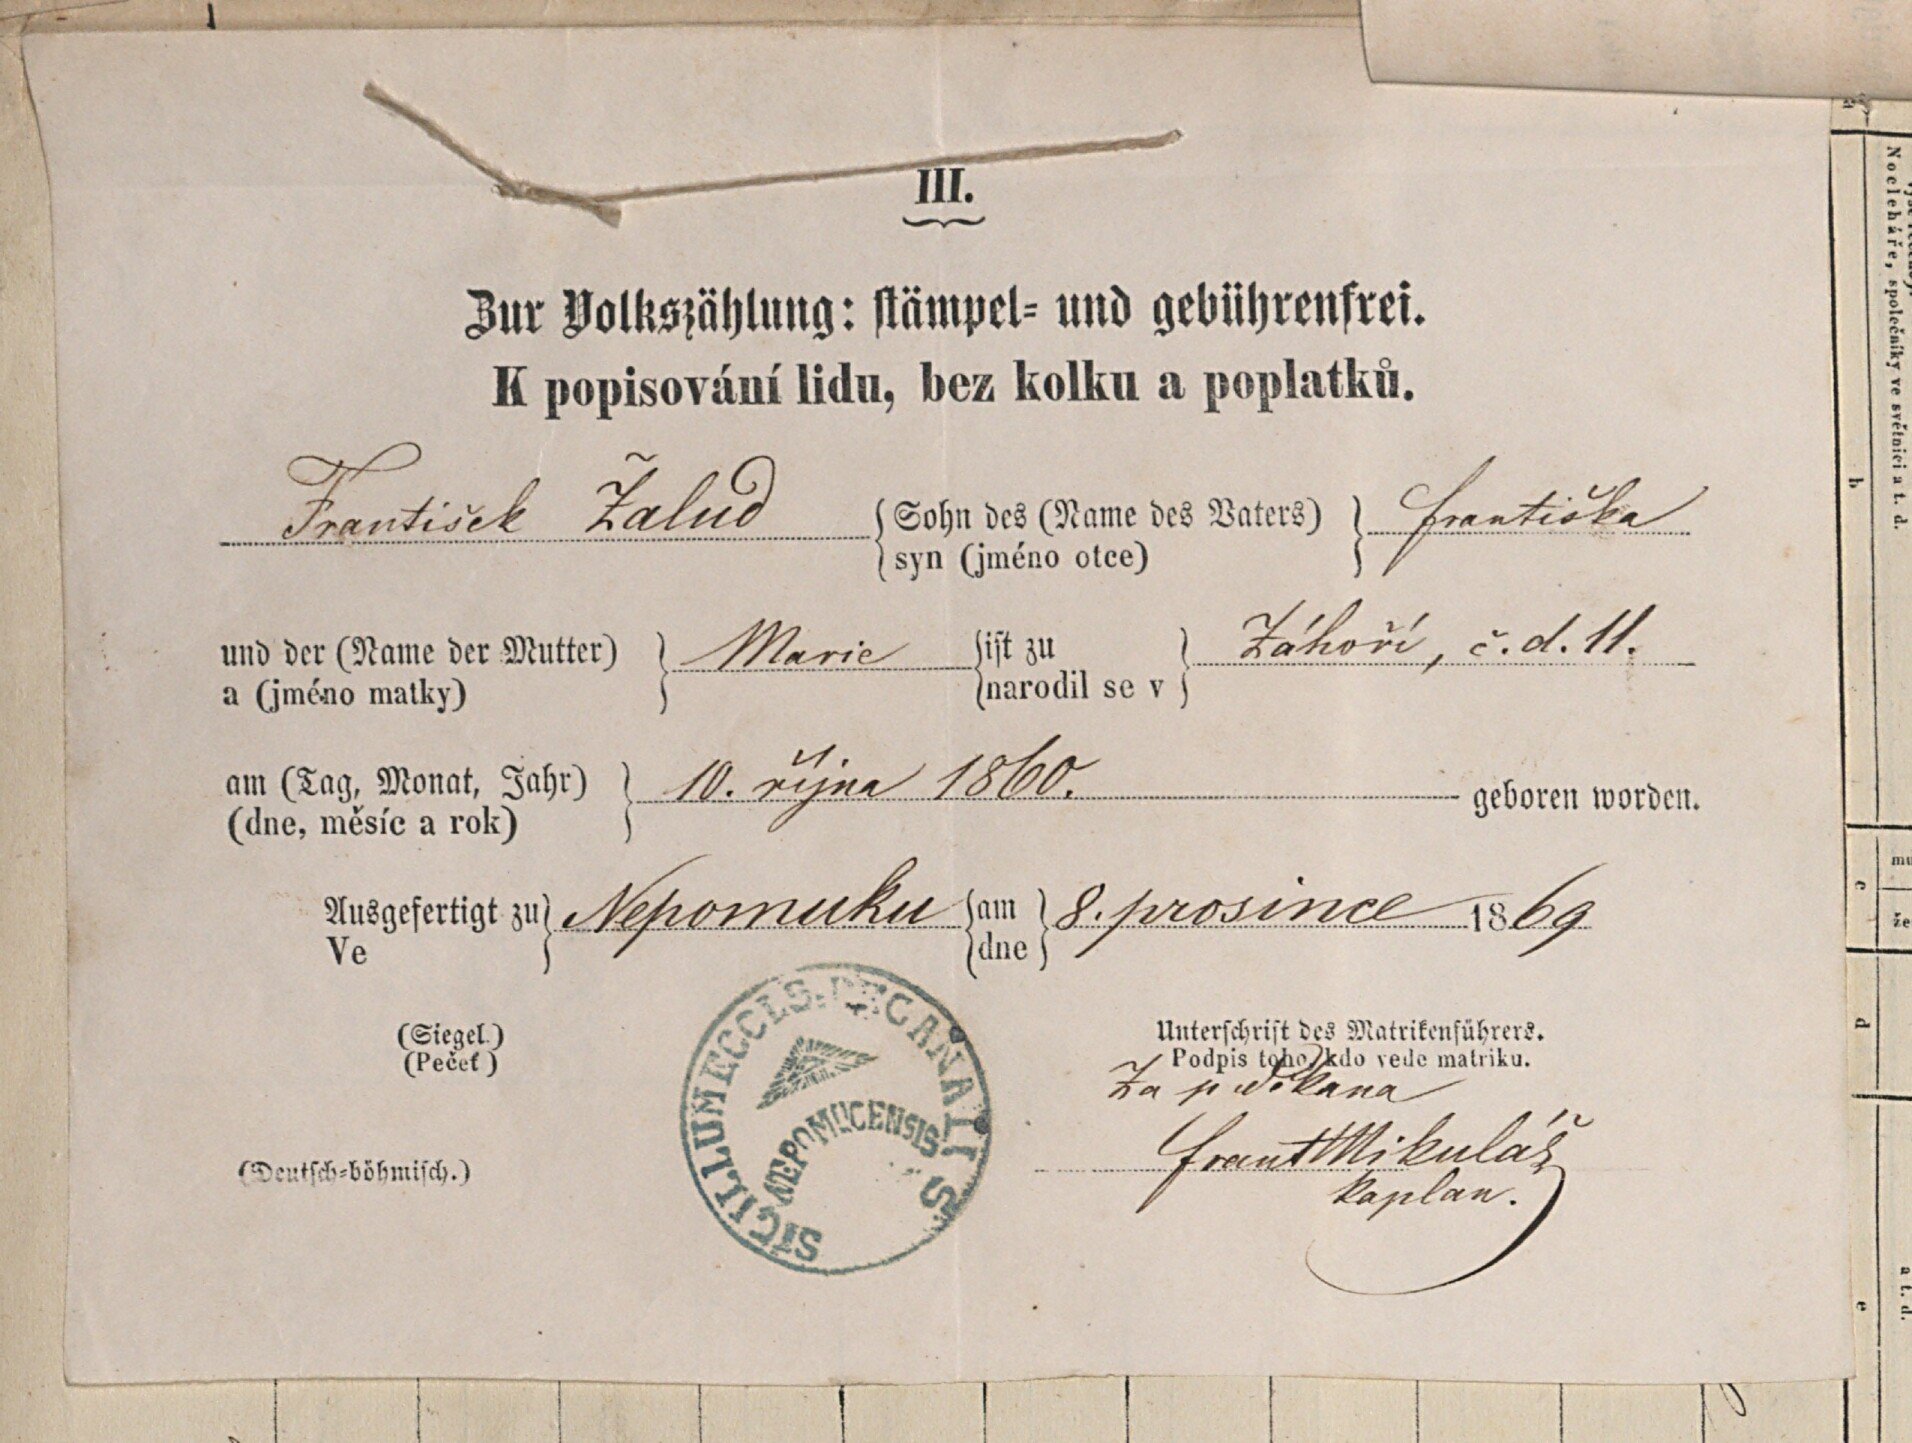 III.
Zur Volkszählung: stämpel= und gebührenfrei.
K popisování lidu, bez kolku a poplatků.
František Žalud { Sohn des (Name des Vaters) } Františka
syn (jméno otce)
und der (Name der Mutter) } Marie { ist zu } Záhoří, č. d. 11.
a (jméno matky) narodil se v
am (Tag, Monat, Jahr) } 10. října 1860. geboren worden.
(dne, měsíc a rok)
Ausgefertigt zu } Nepomuku { am } 8. prosince 1869
Ve dne
(Siegel.) Unterschrift des Matrikenführers.
(Pečeť) Podpis toho, kdo vede matriku.
Za p. děkana
Frant Mikuláš
kaplan.
(Deutsch=böhmisch.)
SIGILLUM ECCLS. DECANATIS
NEPOMUCENSIS
Noclehháře, společníky ve světnici a t. d.
b
c
d
e
a t. d.